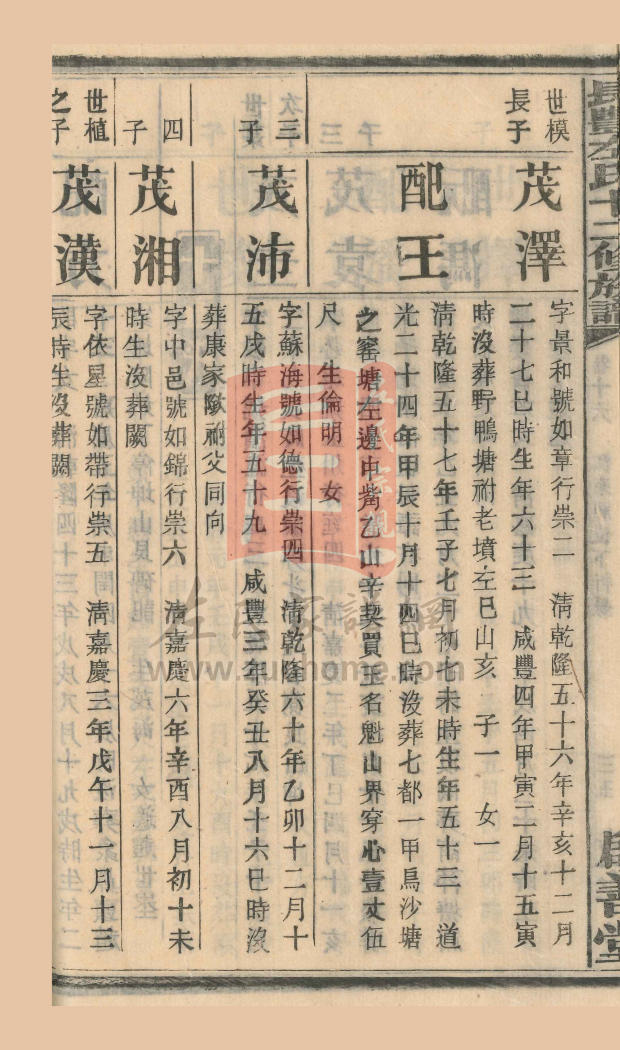 長豐左氏十二修族譜
世模
長子
茂澤
字景和號如章行崇二　清乾隆五十六年辛亥十二月
二十七巳時生年六十三　咸豐四年甲寅二月十五寅
時沒葬野鴨塘祔老墳左巳山亥　子一　女一
配王
清乾隆五十七年壬子七月初七未時生年五十三　道
光二十四年甲辰十月十四巳時沒葬七都一甲烏沙塘
之窰塘左邊中嘴乙山辛契買王名魁山界穿心壹丈伍
尺　生倫明　女一
三
子
茂沛
字蘇海號如德行崇四　清乾隆六十年乙卯十二月十
五戌時生年五十九　咸豐三年癸丑八月十六巳時沒
葬康家墩祔父同向
四
子
茂湘
字中邑號如錦行崇六　清嘉慶六年辛酉八月初十未
時生沒葬闕
世植
之子
茂漢
字依星號如帶行崇五　清嘉慶三年戊午十一月十三
辰時生沒葬闕
善堂
www.zuohome.com